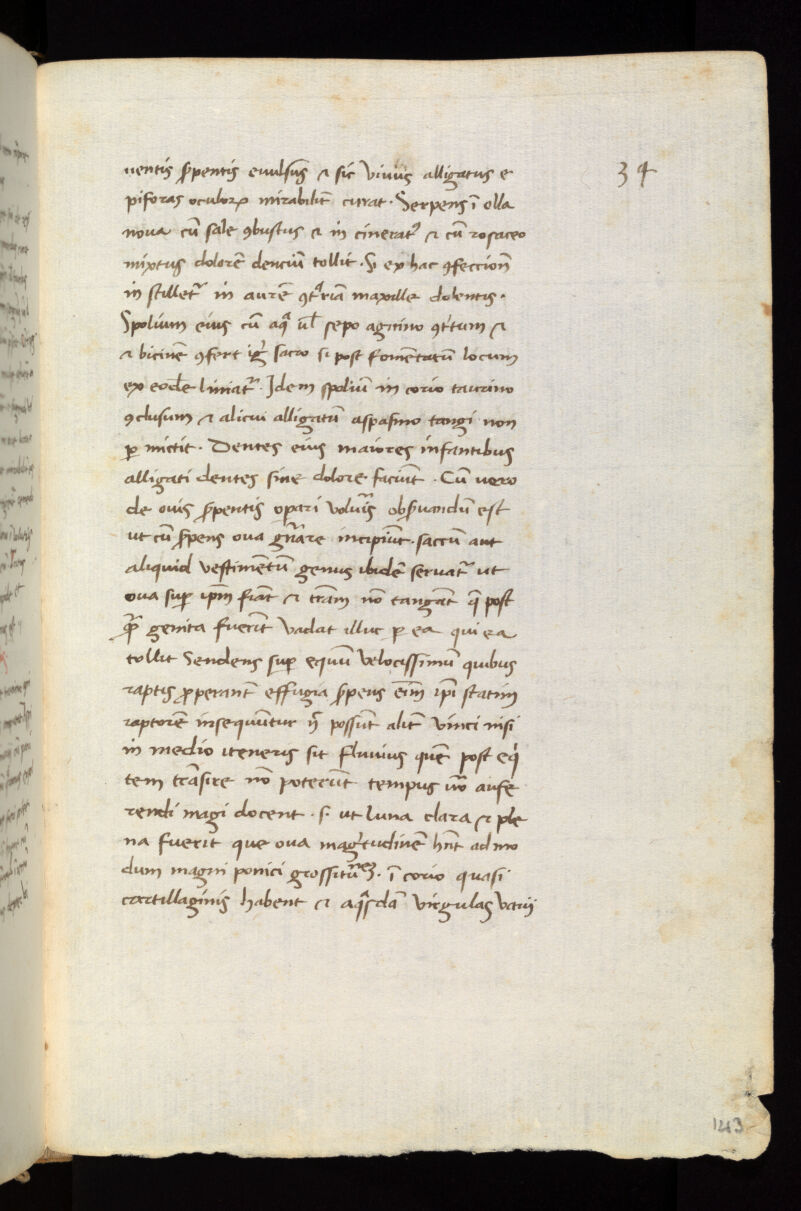 34
uentis s̃pentis euulsus̃ ⁊ sic viuus alligatus e
piforas oculorꝝ mirabilit̃ curat. Serpens ĩ olla
noua cũ sale ꝯbustus ⁊ in cinerat᷒ ⁊ cũ rosaceo
mixtus dolorẽ dencium tollit. Sꝫ ex hac ꝯfecciõn
in stillet᷑ in aurẽ ꝯt̃riam maxille dolentis.
Spolium eius cũ aqͣ ul̃ sepo agnino
⁊ bicinẽ ꝯfert ig̃ sacro si post fomẽtatũ locum
ex eodẽ liniat᷑. Idem spoliũ in corio taurino
ꝯclusum ⁊ alicui alligatũ aspasmo tangi non
ꝑ mictit. Dentes eius maiores infantibus
alligati dentes sine dolore faciũt. Cũ uero
de ouis s̃pentis opari obs̃uandũ est
ut cũ s̃pens oua gñare incipiũt. saccũ aut
aliquid vestimẽtũ genus ibidẽ seruat᷑ ut
oua suꝑ ip̃m fiãt ⁊ tr̃am nõ tangãt q̃ post
q̃ genita fuerĩt vadat illuc ꝑ ea qui ea
tollit sendens suꝑ equũ velocissimũ quibus
raptis ꝓperant̃ effugia s̃pens eĩm ip̃i statim
raptorẽ insequũtur ñ possũt alit̃ vinci nisi
in medio iteneris sit fluuius quẽ post eqͥ
tem trãsire nõ poterũt tempus ũo aufe
rendi magi docent. s. ut luna clara ⁊ ple
na fuerit que oua magͥtudinẽ hñt ad mo
dum magni ponici ĩ corio quasi
cartillaginis habent ⁊ virgulas varij
143